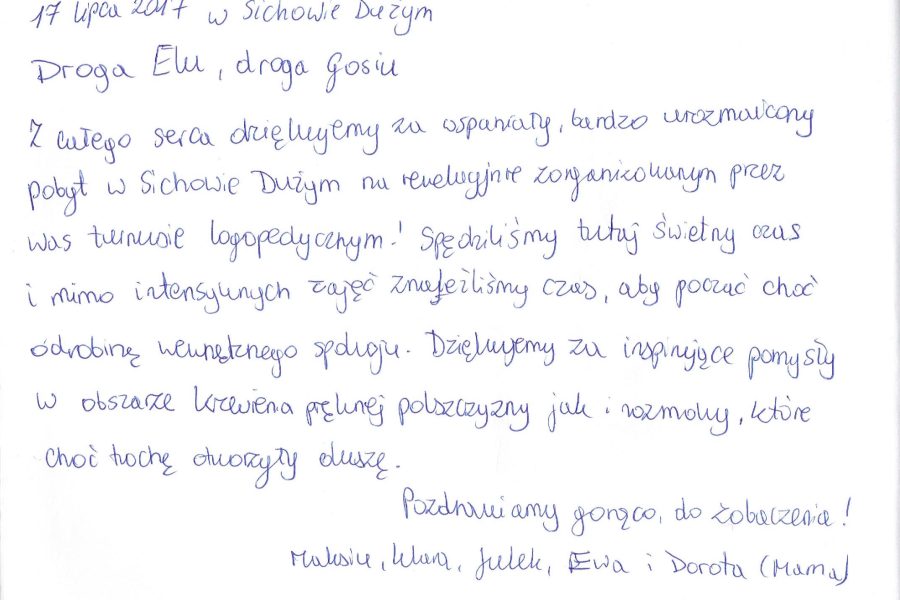 17 lipca 2017 w Sichowie Dużym
Droga Elu, droga Gosiu
Z całego serca dziękujemy za wspaniały, bardzo urozmaicony
pobyt w Sichowie Dużym na rewelacyjnie zorganizowanym przez
was turnusie logopedycznym! Spędziliśmy tutaj świetny czas
i mimo intensywnych zajęć znaleźliśmy czas, aby poczuć choć
odrobinę wewnętrznego spokoju. Dziękujemy za inspirujące pomysły
w obszarze krzewienia pięknej polszczyzny jak i rozmowy, które
choć trochę otworzyły duszę.
Pozdrawiamy gorąco, do zobaczenia!
Maksiu, Klara, Julek, Ewa i Dorota (Mama)